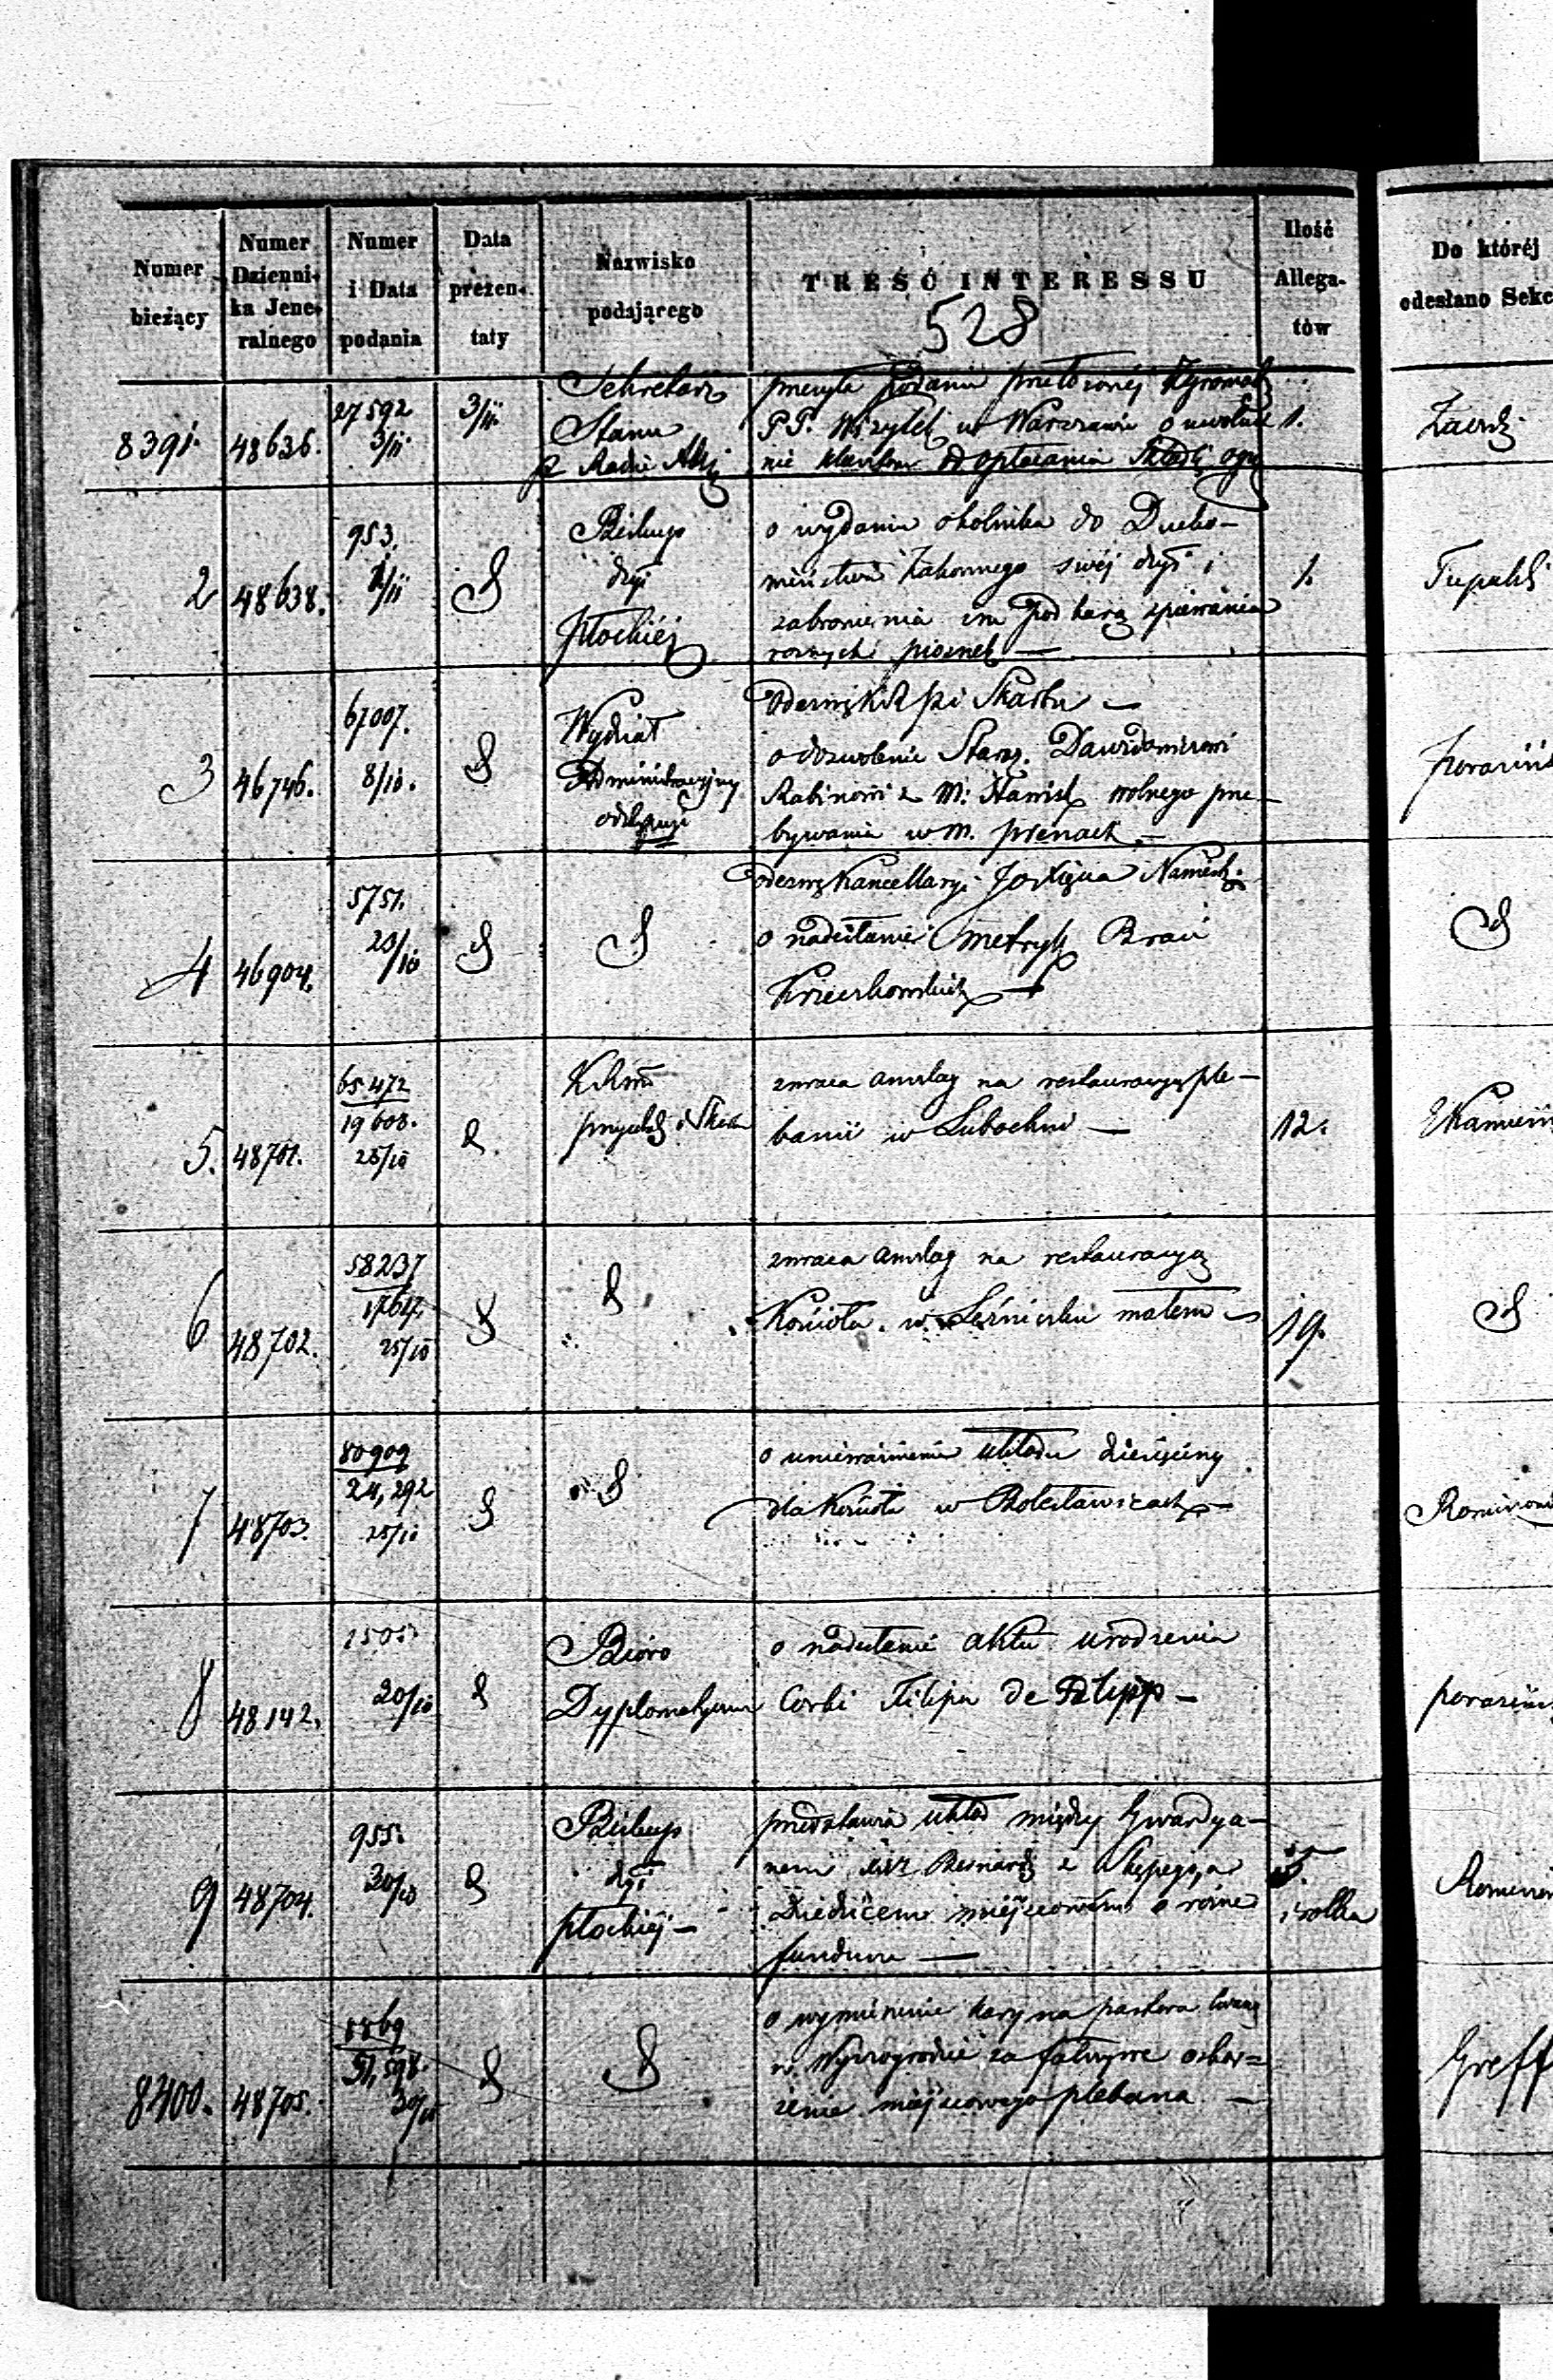 Numer bieżący
Numer Dzienni- ka Jene- ralnego
Numer i Data podania
Data prezen- taty
Nazwisko podającego
TREŚĆ INTERESSU
Ilość Allega- tów
Do któréj odesłano Sekc
528
8391. 48636. 27592 3/11 3/11.
Sekretarz
Stanu
przesyła podanie przełożonej Zgromadz
P.P. Wizytek w Warszawie o uwolnie
nie klasztoru od opłacania składki ogn
1.
2 48638. 953. 1/11
Biskup
dyi
Płockiéj
o wydaniu okolnika do Ducho-
wieństwa zakonnego swéj dyi i
zabronienia im pod karą śpiewania
roznych piosnek —
1.
3 46746. 67007. 8/10.
Wydział
Administracyjny
odezwę KRPi Skarbu —
o dozwolenie Staroz. Dawidowiczowi
Rabinowi z M: Stanisł wolnego prze-
bywania w m. Prenach —
4 46904. 5751. 23/10
odezwę Kancellaryi JO Xięcia Namiest.
o nadesłanie metryk Braci
5. 48701. 65.472 19608. 25/10
KRSW
zwraca anszlag na restauracyę ple-
banii w Lubochni —
12.
6 48702. 58237 17617. 25/10
zwraca anszlag na restauracyą
Kościoła w Leśniewku małem
19.
7 48703. 80909 24,292 25/10
o unieważnienie układu dziesięciny
dla Kościoła w Bolesławicach —
8 48142. 1505. 20/10
Bióro
Dyplomatyczne
o nadesłanie aktu urodzenia
Corki Filipa de Filippo —
9 48704. 955. 30/10
Biskup
dyi
Płockiéj —
przedstawia układ między Gwardya-
nem XX Bernard z Skępego, a
Dziedzicem miejscowym o różne
fundum —
5
i rolka
8400. 48705. 30/10
o wymierzenie kary na pastora Ewang
w Wyszogrodzie za fałszywe oskar-
żenie miejscowego plebana —
Greff